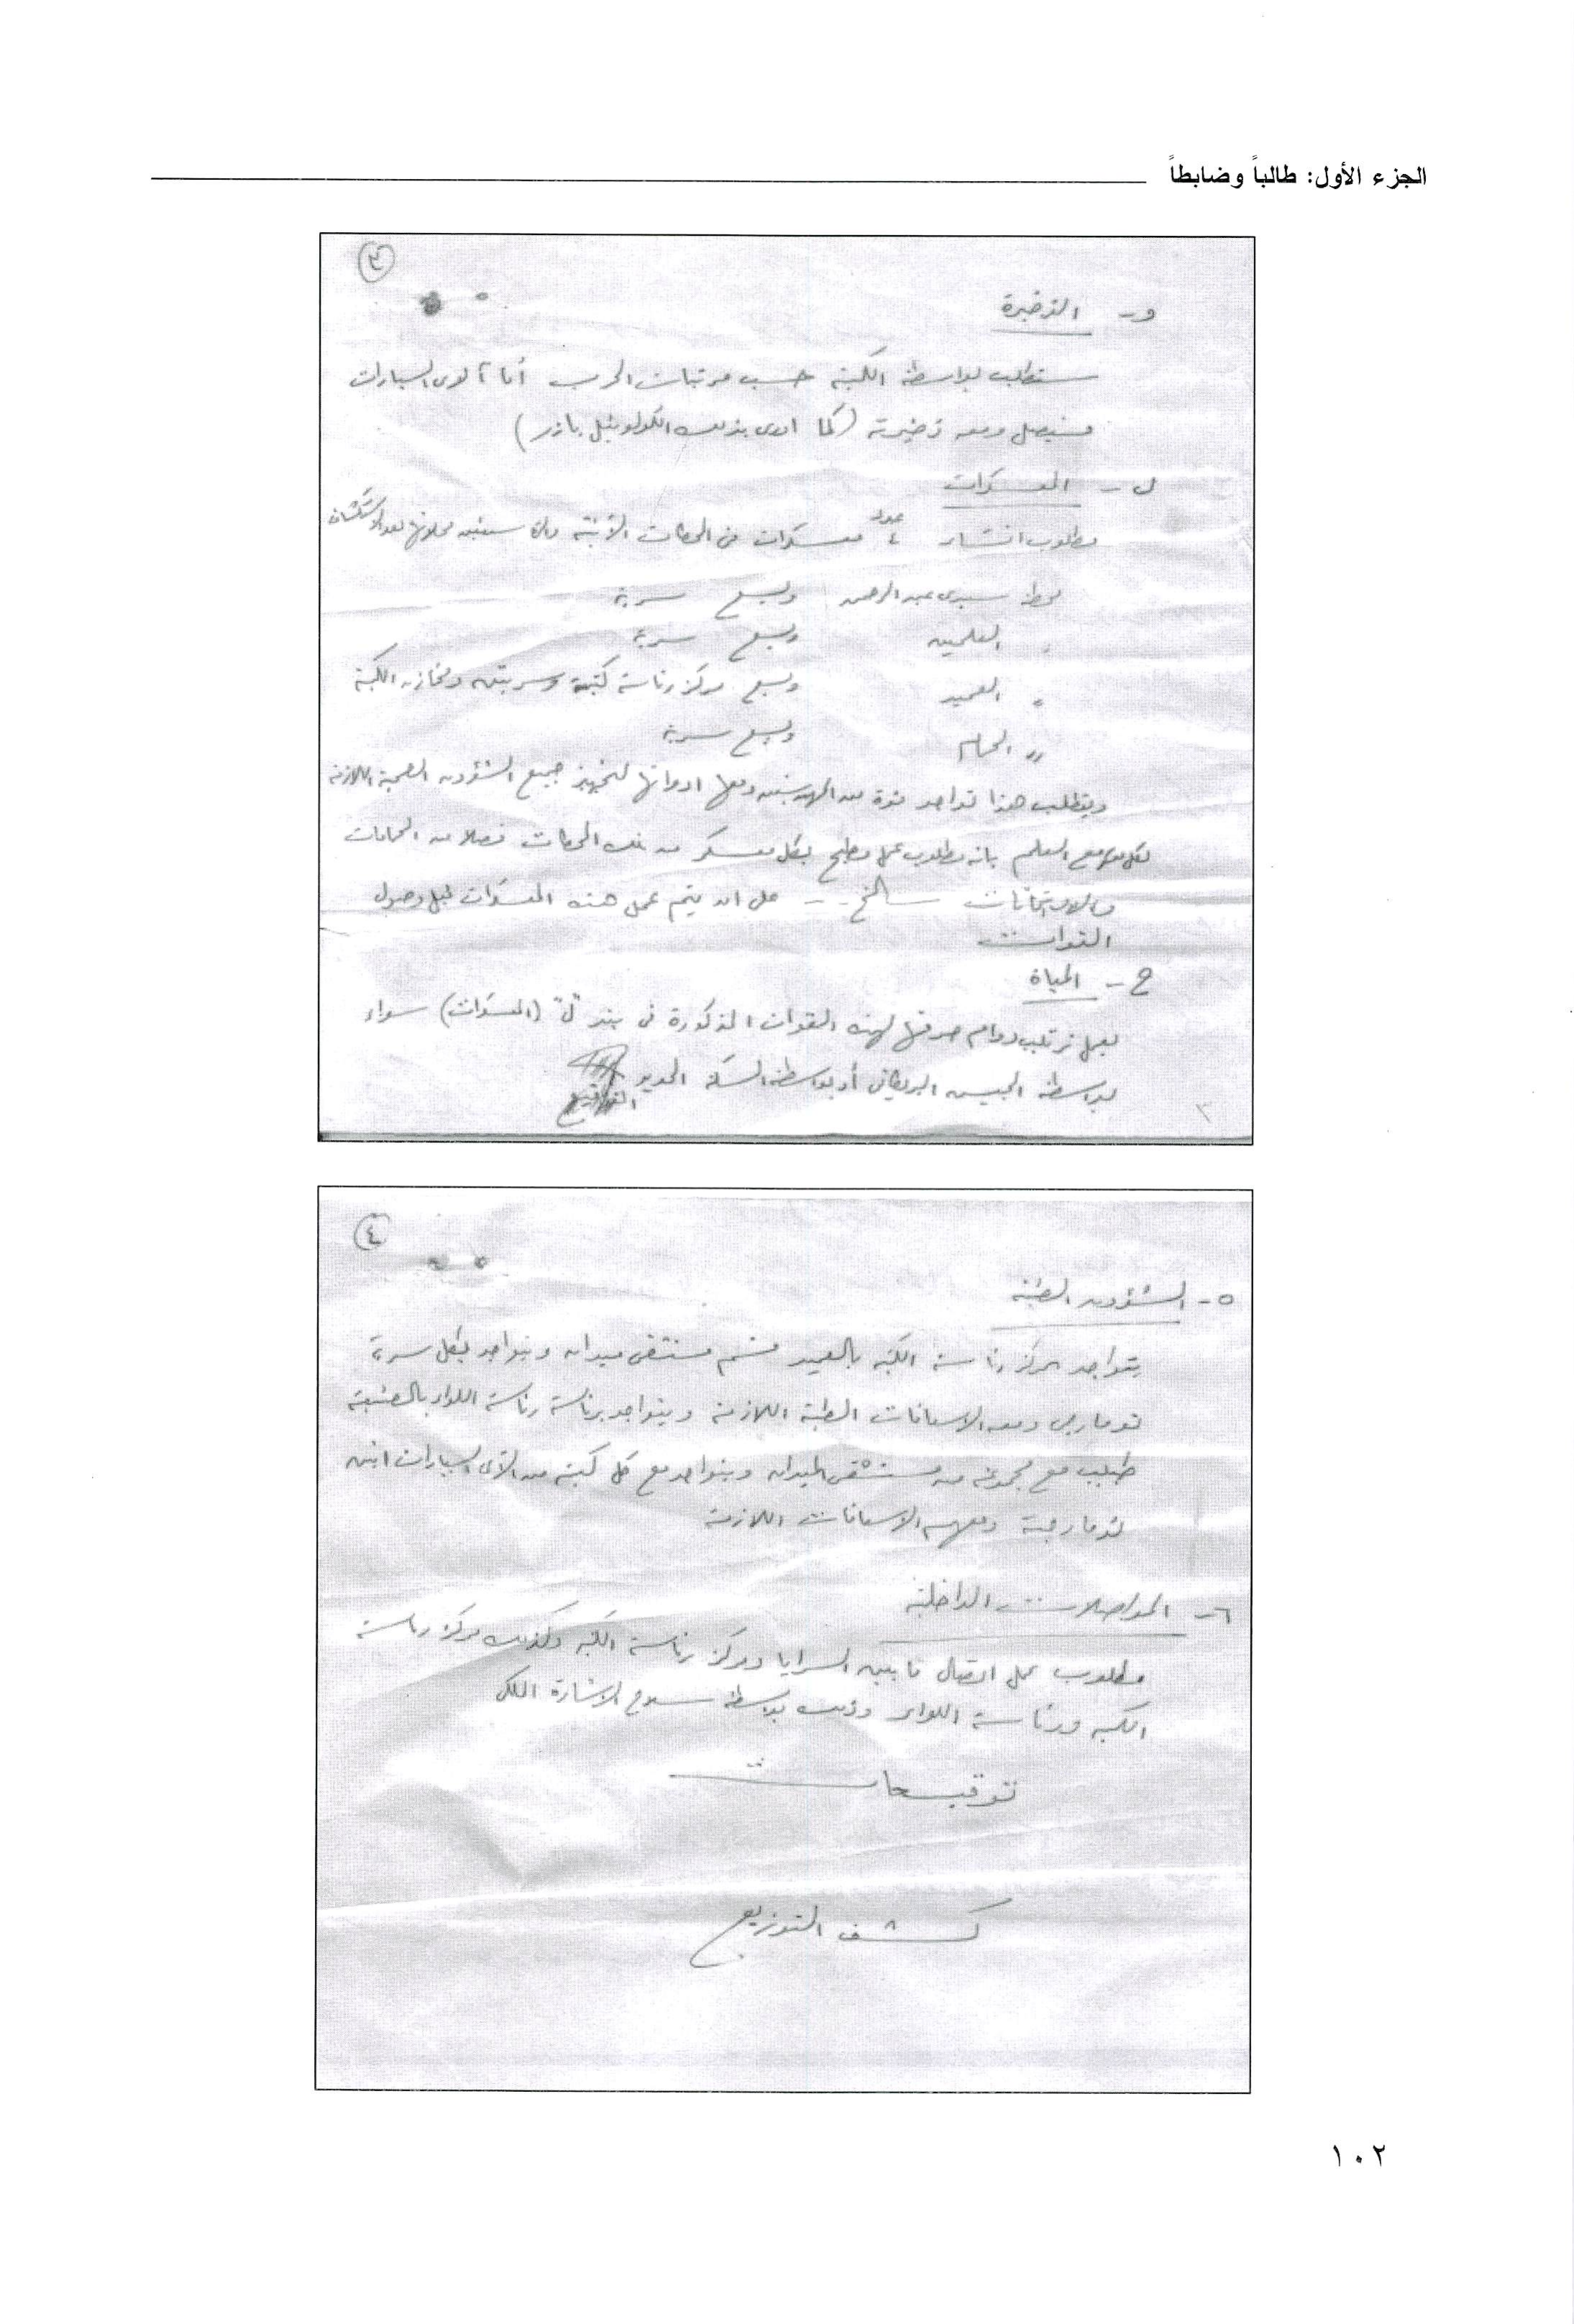 الجزء الأول: طالباً وضابطاً
٣
و- الذخيرة
ستطلب بواسطة الكتيبة حسب مرتبات الحرب أما آلاى السيارات
فسيصل ومعه ذخيرته (كما ادى بذلك الكولونيل بازر)
ل- المعسكرات
مطلوب انشاء عدد ٤ معسكرات فى المحطات الآتية والتى محلاتها بعد الاستكشاف
محطة سيدى عبد الرحمن ويسع سرية
" العلمين ويسع سرية
" العميد ويسع مركز رئاسة كتيبة وسريتين ومخازن الكتيبة
" الحمام ويسع سرية
ويتطلب هذا تواجد قوة من المهندسين ومعها ادواتها لتجهيز جميع الشؤون الصحية اللازمة
لكل مع العلم بانه مطلوب عمل مطبخ بكل معسكر من تلك المحطات فضلا عن الحمامات
والادبخانات الخ -- على ان يتم عمل هذه المعسكرات قبل وصول
القوات
ح- المياة
يعمل ترتيب دوام صرفها لهذه القوات المذكورة فى بند "ل" (المعسكرات) سواء
بواسطة الجيش البريطانى أو بواسطة السكة الحديد
٣
٤
٥- الشؤون الطبية
يتواجد بمركز رئاسة الكتيبة بالعميد قسم مستشفى ميدان ويتواجد بكل سرية
تومارجى ومعه الاسعافات الطبية اللازمة ويتواجد برئاسة رئاسة اللواء
طبيب مع مجموعة من مستشفى الميدان ويتواجد مع كل كتيبة من آلاى السيارات اثنين
تومارجية ومعهم الاسعافات اللازمة
٦- المواصلات الداخلية
مطلوب عمل اتصال ما بين السرايا ومركز رئاسة الكتيبة وكذلك مركز رئاسة
الكتيبة ورئاسة اللواء وذلك بواسطة سلاح الاشارة الملكى
توقيعات
كشف التوزيع
١٠٢